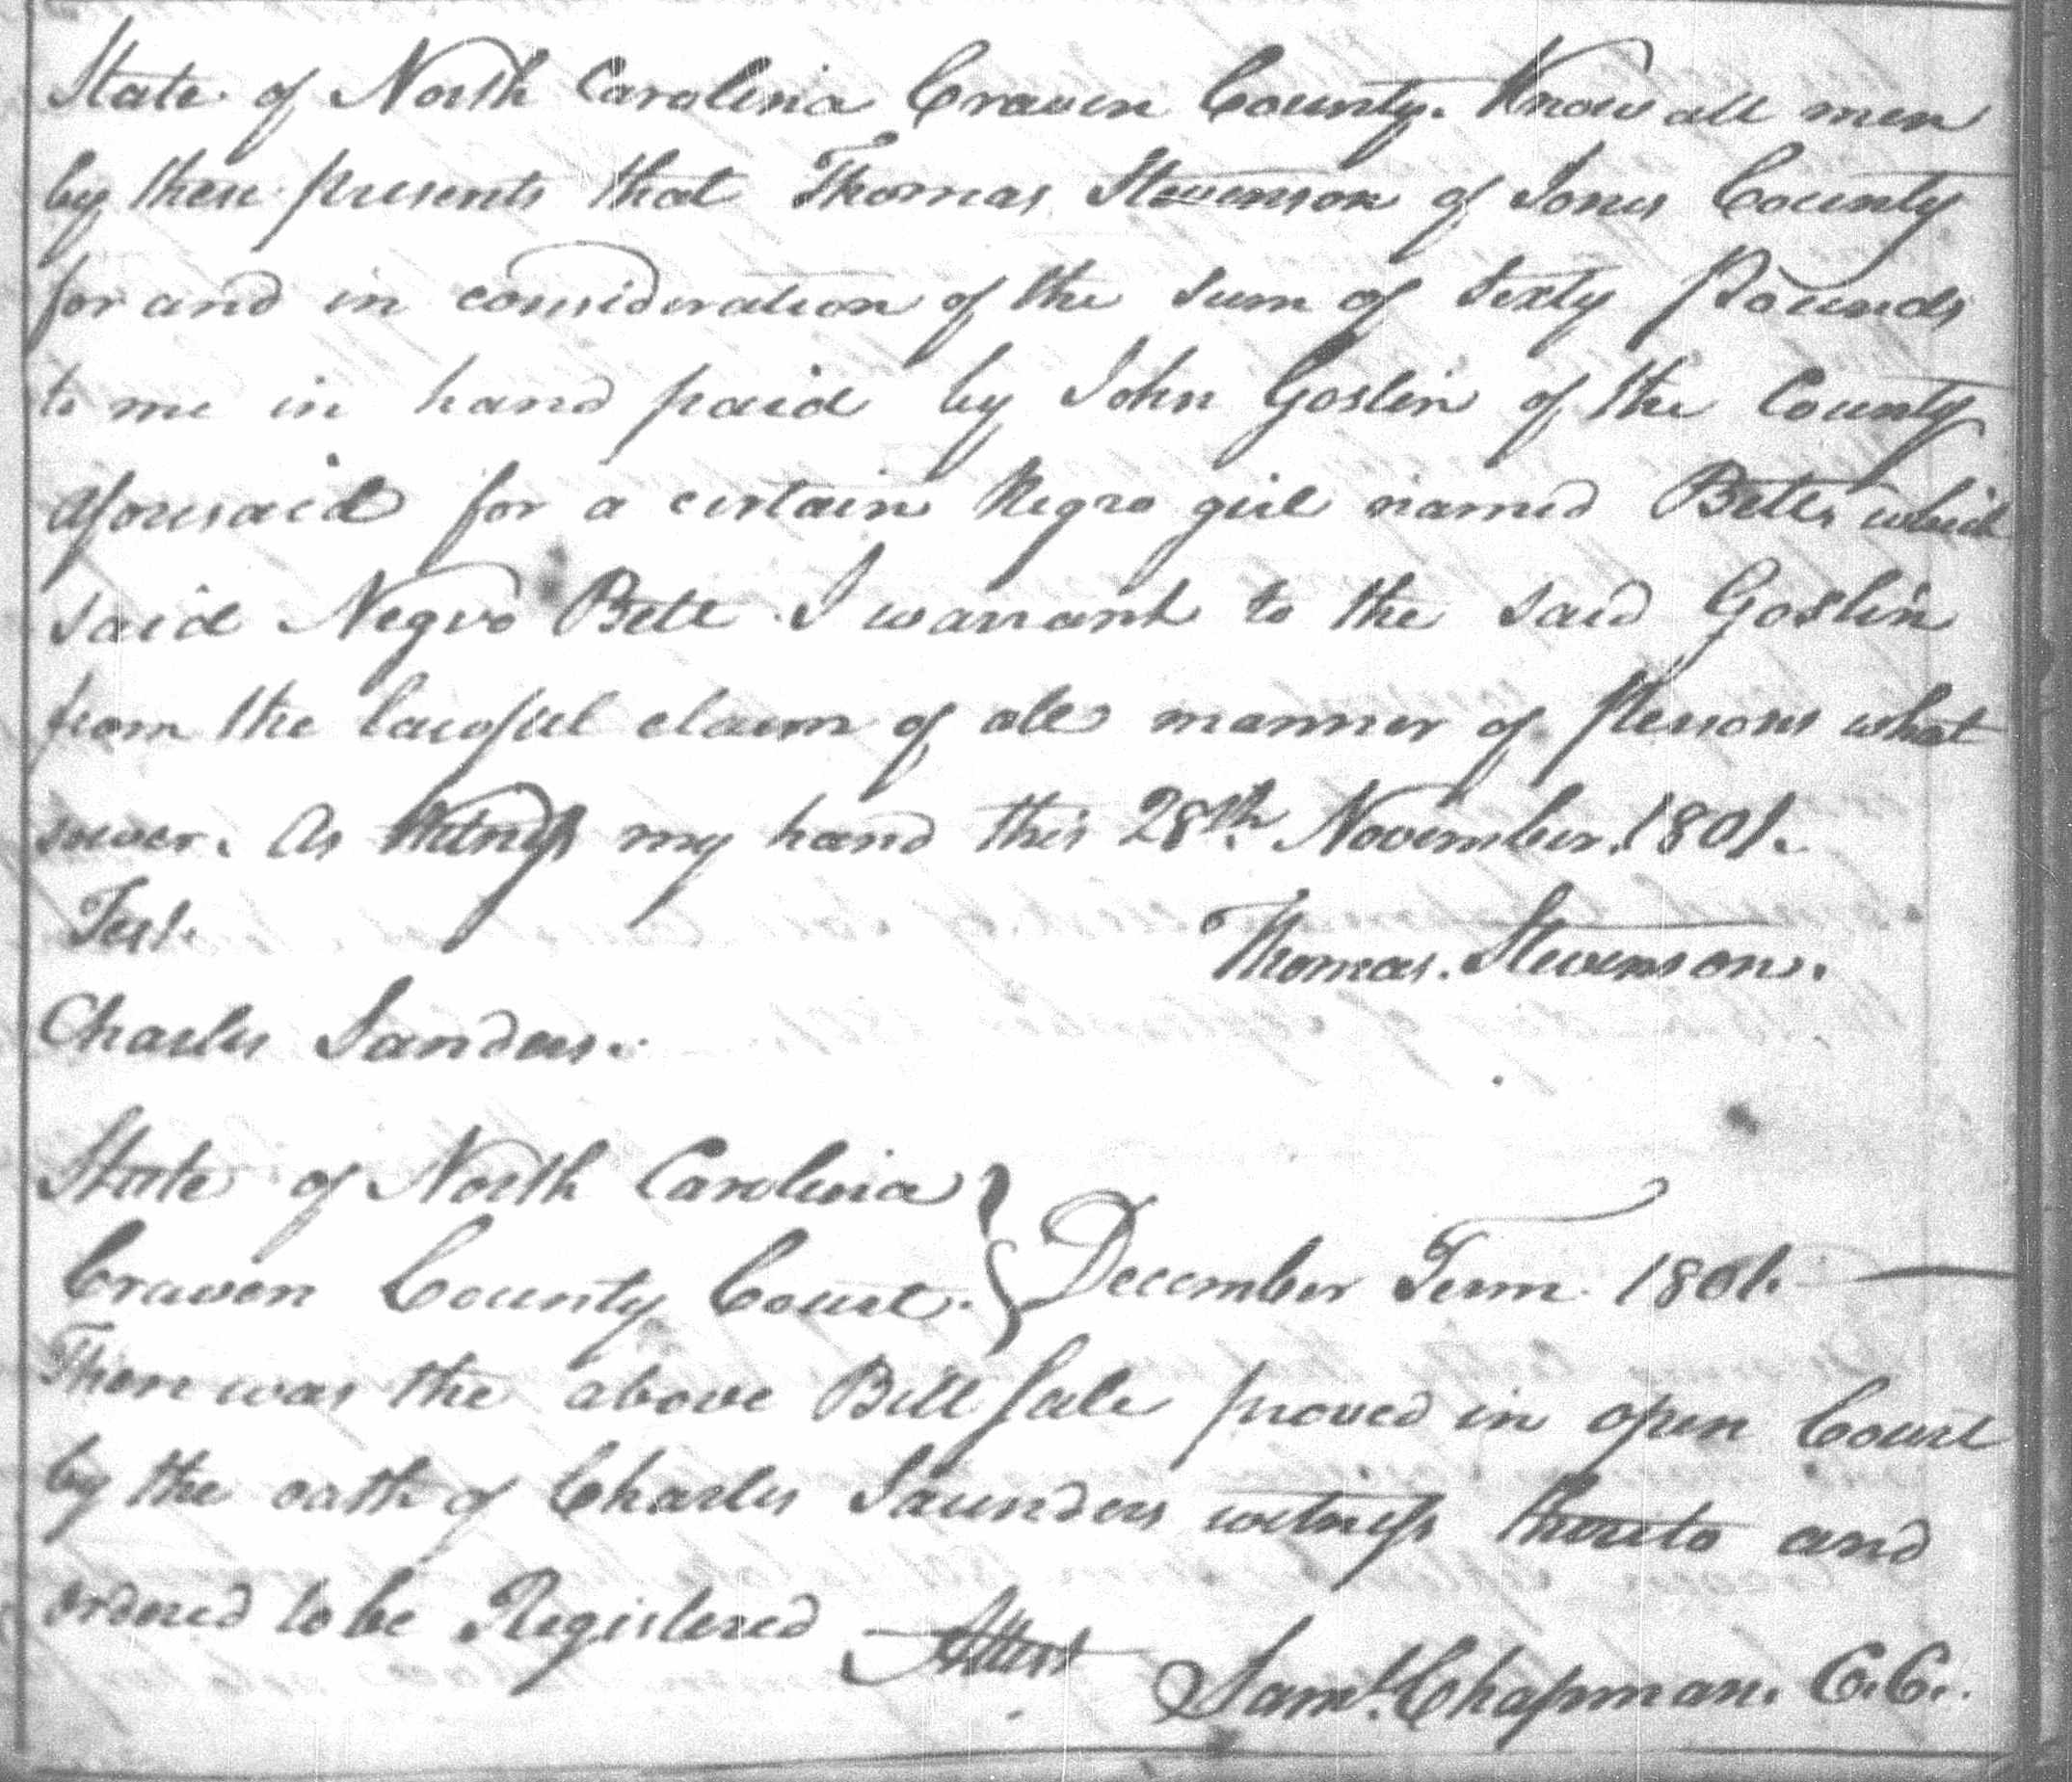 State of North Carolina Craven County. Know all men
by these presents that Thomas Stevenson of Jones County
for and in consideration of the sum of Sixty Pounds
to me in hand paid by John Goslin of the County
aforesaid for a certain Negro girl named Bett, which
said Negro Bett I warrant to the said Goslin
from the lawful claim of all manner of Persons what
soever. As Witness my hand this 28th November. 1801.
Test.
Thomas. Stevenson.
Charles Sanders.
State of North Carolina
Craven County Court. } December Term. 1801.
Then was the above Bill Sale proved in open Court
by the oath of Charles Saunders witness thereto and
ordered to be Registered Attest
Saml. Chapman. C.C.